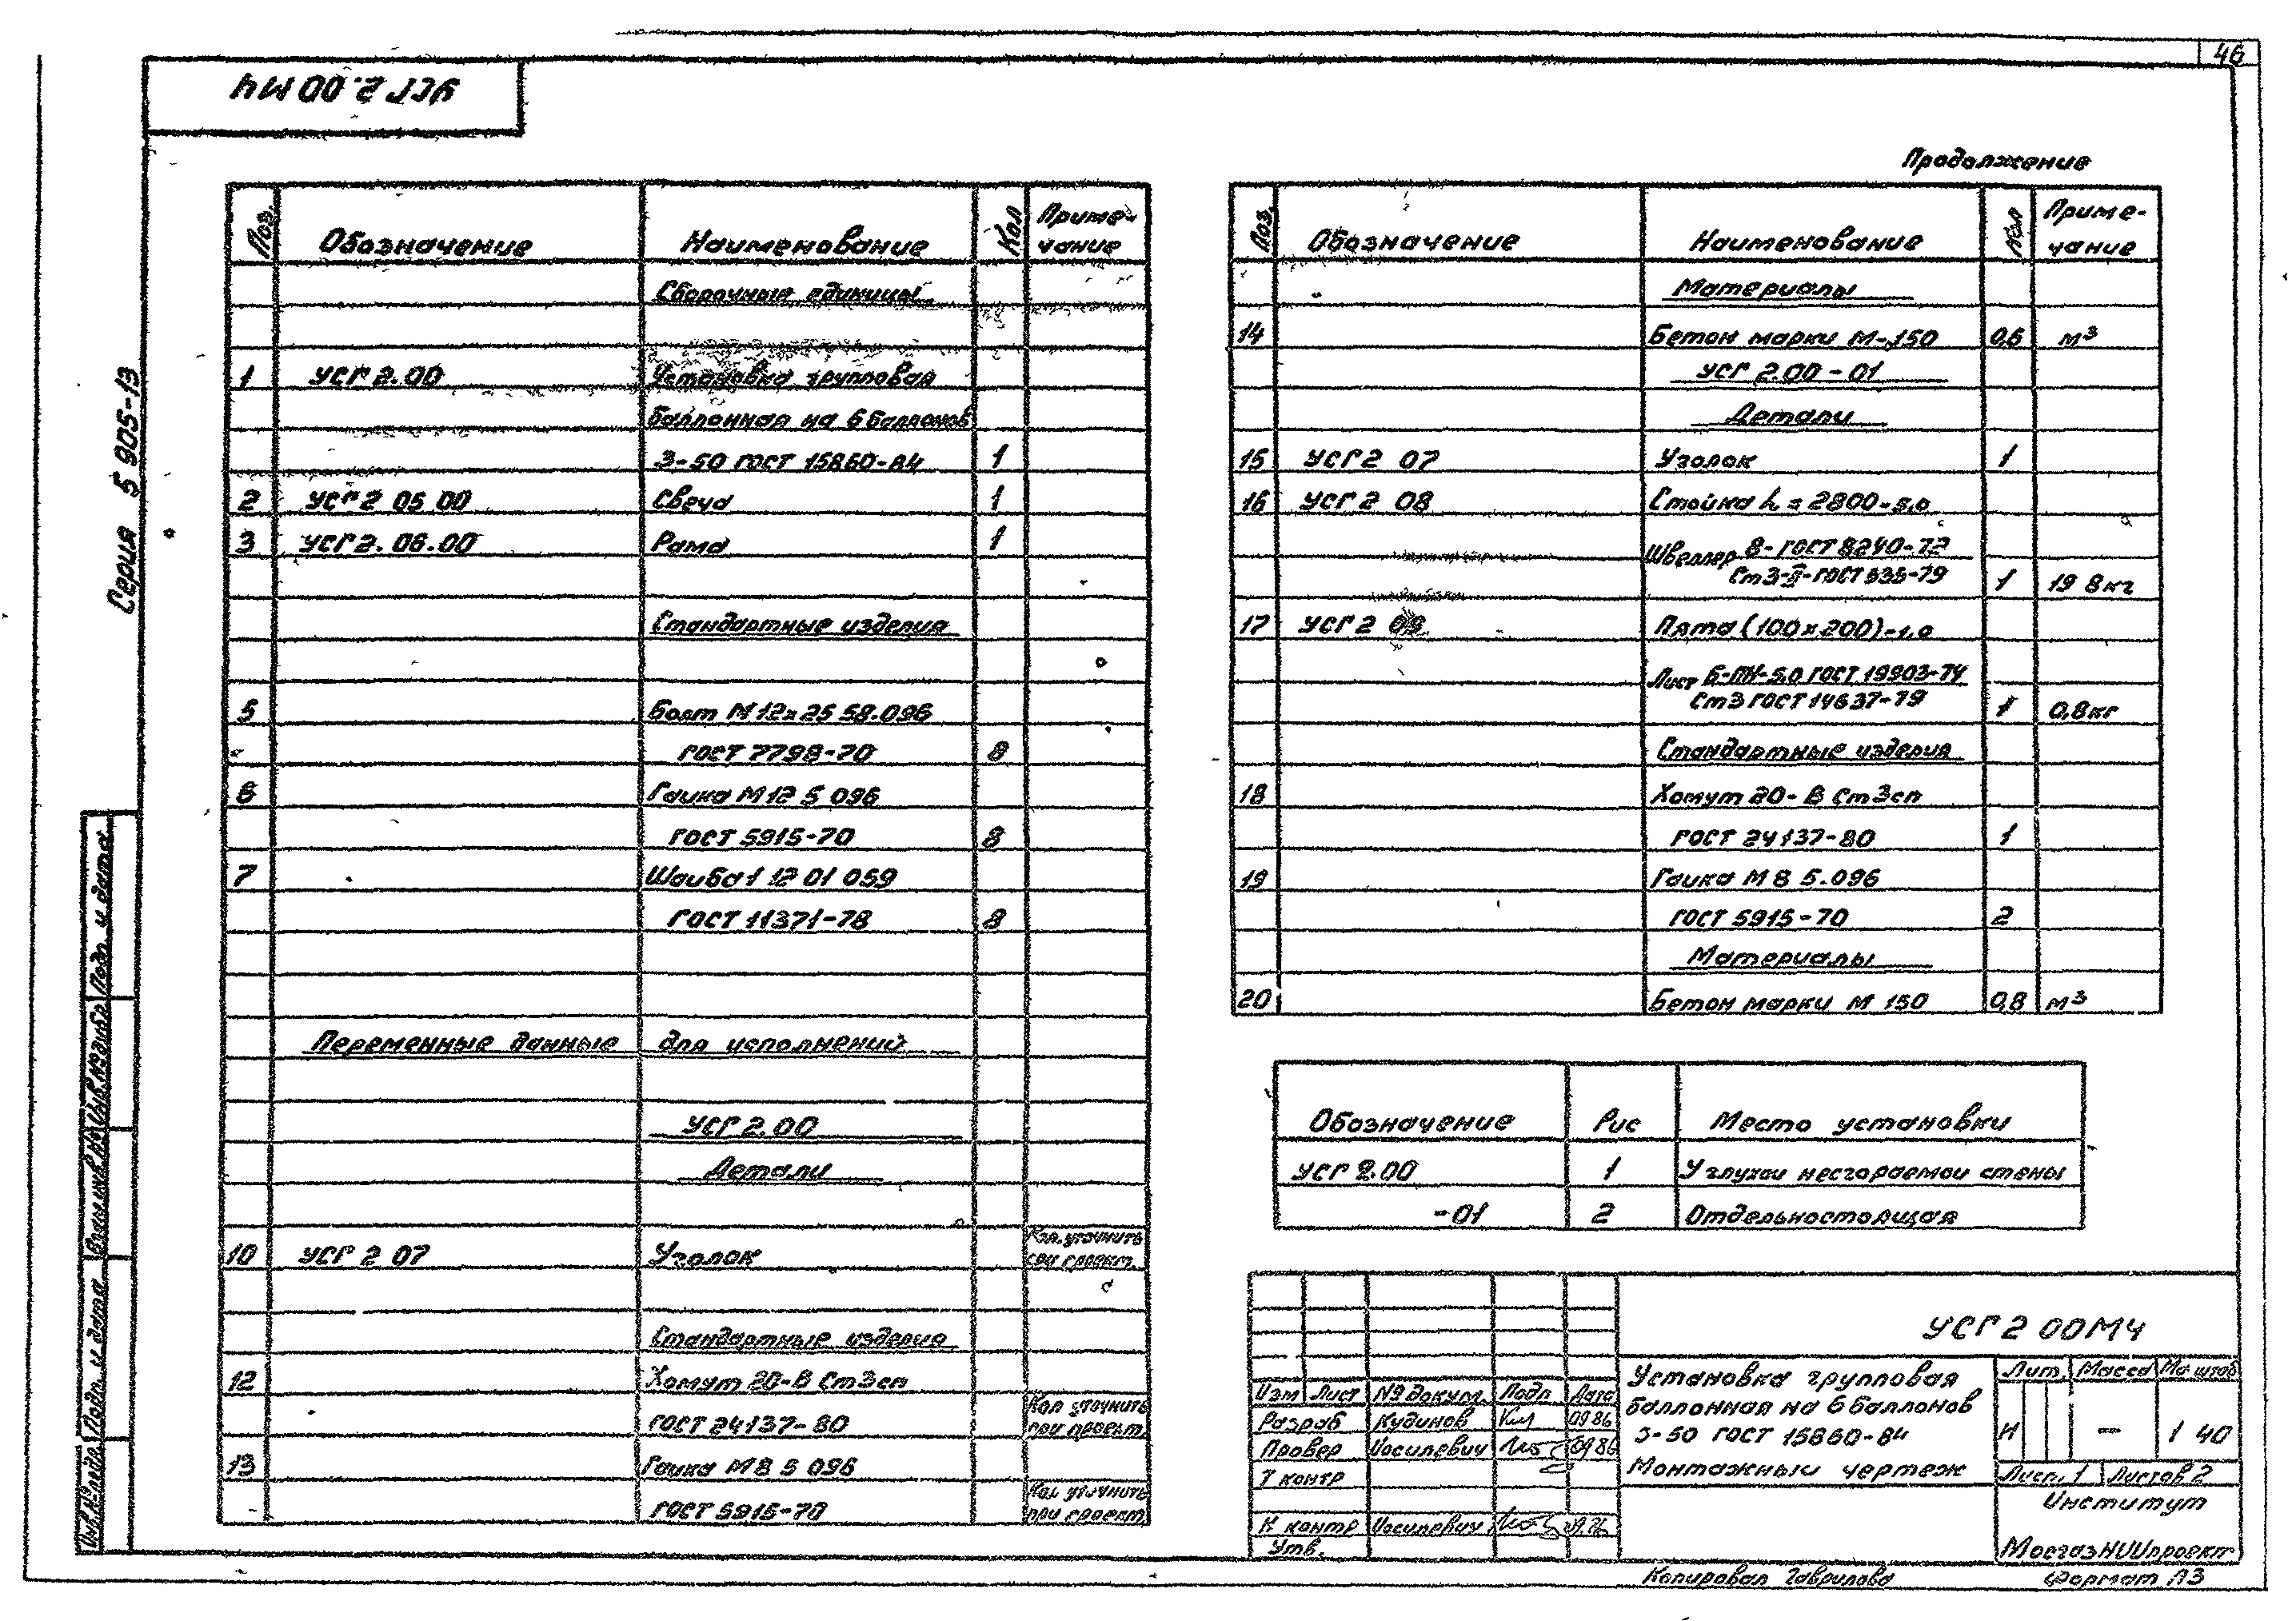 46
УСГ 2.00 МЧ
Серия 5 905-13
Продолжение
Поз. Обозначение Наименование Кол Приме-
чание
Сборочные единицы
1 УСГ 2.00 Установка групповая
баллонная на 6 баллонов
3-50 ГОСТ 15860-84 1
2 УСГ 2 05 00 Свеча 1
3 УСГ 2. 06.00 Рама 1
Стандартные изделия
5 Болт М12х25 58.096
ГОСТ 7798-70 8
6 Гайка М12 5 096
ГОСТ 5915-70 8
7 Шайба 1 12 01 059
ГОСТ 11371-78 8
Переменные данные для исполнений
УСГ 2.00
Детали
10 УСГ 2 07 Уголок Кол. уточнить
при проект.
Стандартные изделия
12 Хомут 20-В Ст3сп
ГОСТ 24137-80 Кол уточнить
при проект.
13 Гайка М8 5 096
ГОСТ 5915-70 Кол уточнить
при проект.
Поз. Обозначение Наименование Кол Приме-
чание
Материалы
14 Бетон марки М-150 0,6 м³
УСГ 2.00-01
Детали
15 УСГ 2 07 Уголок 1
16 УСГ 2 08 Стойка h = 2800-5,0
Швеллер 8-ГОСТ 8240-72
Ст3-II-ГОСТ 535-79 1 19 8кг
17 УСГ 2 09 Пята (100х200)-1,0
Лист Б-ПН-5,0 ГОСТ 19903-74
Ст3 ГОСТ 14637-79 1 0,8кг
Стандартные изделия
18 Хомут 20-В Ст3сп
ГОСТ 24137-80 1
19 Гайка М8 5.096
ГОСТ 5915-70 2
Материалы
20 Бетон марки М 150 0,8 м³
Обозначение Рис Место установки
УСГ 2.00 1 У глухой несгораемой стены
-01 2 Отдельностоящая
УСГ 2 00МЧ
Установка групповая
баллонная на 6 баллонов
3-50 ГОСТ 15860-84
Монтажный чертеж
Лит. Масса Масштаб
И — 1 40
Лист. 1 Листов 2
Институт
МосгазНИИпроект
Изм Лист № докум. Подп Дата
Разраб Кудинов 09 86
Провер Иосилевич 09 86
Т контр
Н контр Иосилевич 09.86
Утв.
Копировал Гаврилова Формат А3
Подп. и дата
Инв.№ дубл.
Взам.инв.№
Подп. и дата
Инв.№ подл.